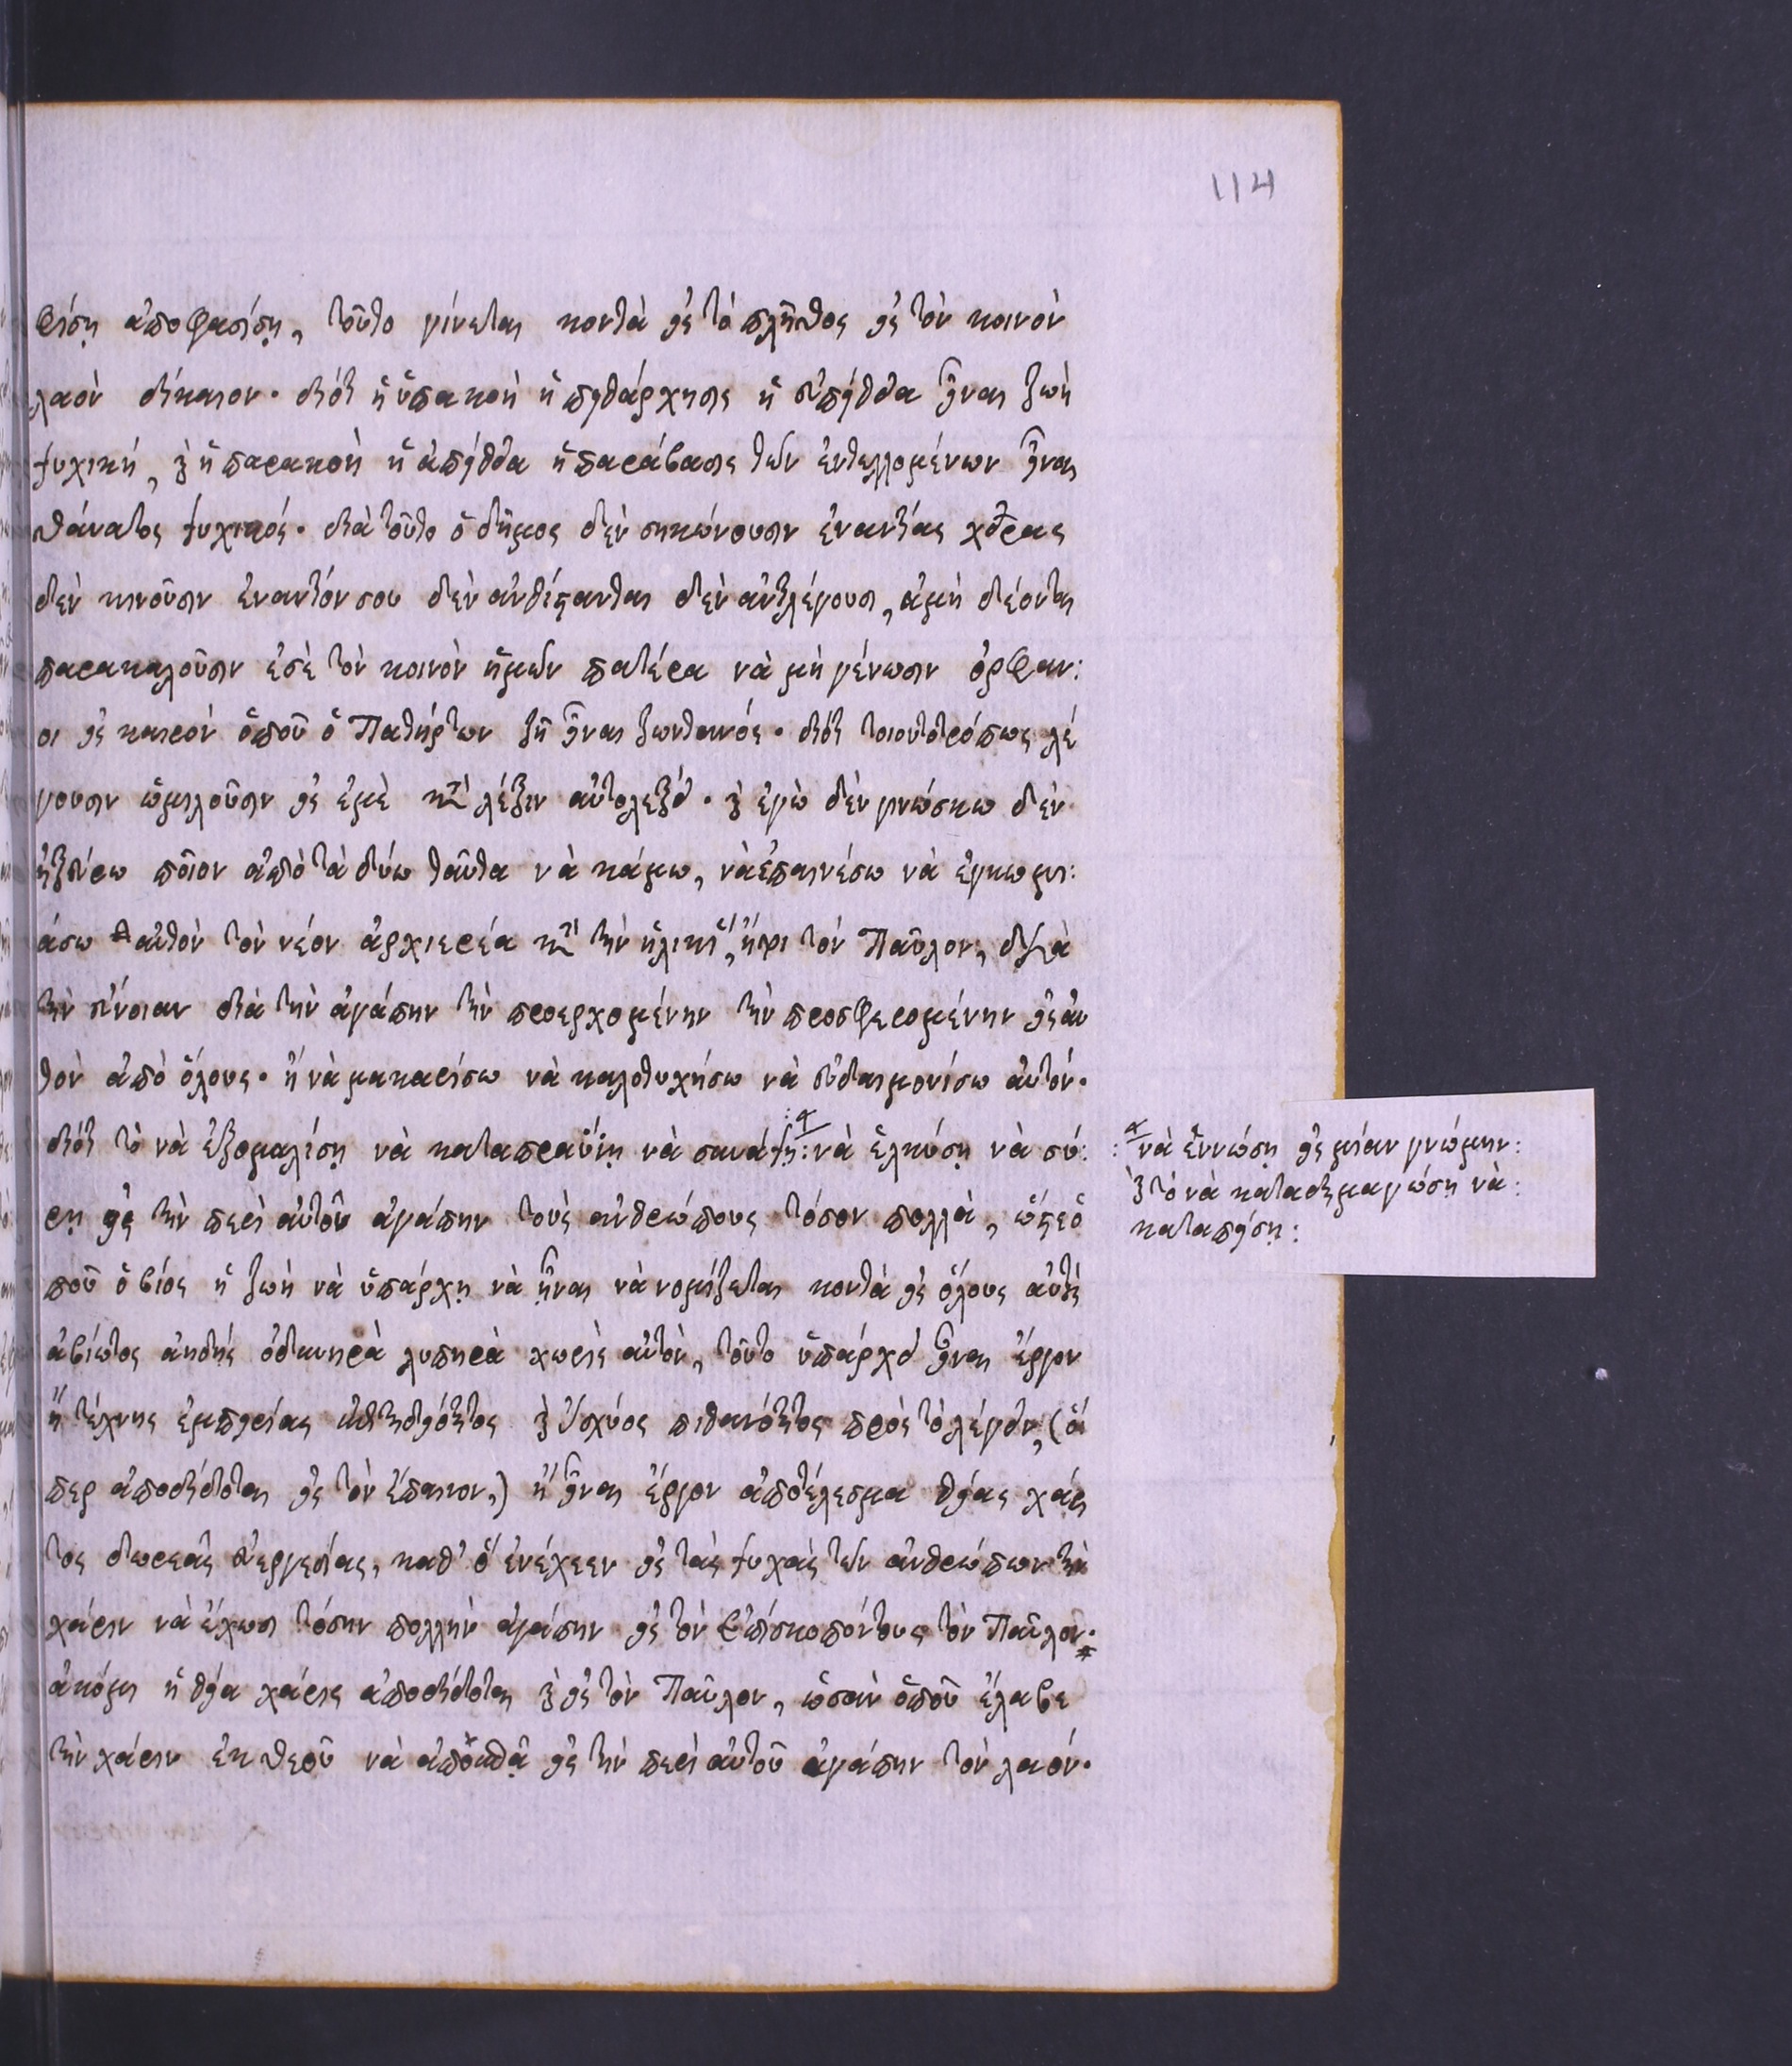 114
φίσῃ ἀποφασίσῃ, τοῦτο γίνεται κοντὰ εἰς τὸ πλῆθος εἰς τὸν κοινὸν
λαὸν δίκαιον· διότι ἡ ὑπακοὴ ἡ πειθάρχησις ἡ εὐπείθεια εἶναι ζωὴ
ψυχική, καὶ ἡ παρακοὴ ἡ ἀπείθεια ἡ παράβασις τῶν ἐντελλομένων εἶναι
θάνατος ψυχικός· διὰ τοῦτο ὁ δῆμος δὲν σηκώνουσιν ἐναντίας χεῖρας
δὲν κινοῦσιν ἐναντίόν σου δὲν ἀνθίστανται δὲν ἀντιλέγουσι, ἀμὴ δέονται
παρακαλοῦσιν ἐσὲ τὸν κοινὸν ἡμῶν πατέρα νὰ μὴ γένωσιν ὀρφαν:
οι εἰς καιρὸν ὁποῦ ὁ Πατήρ των ζῇ εἶναι ζωντανός· διότι τοιουτοτρόπως λέ
γουσιν ὡμιλοῦσιν εἰς ἐμὲ κατὰ λέξιν αὐτολεξεί· καὶ ἐγὼ δὲν γινώσκω δὲν
ἠξεύρω ποῖον ἀπὸ τὰ δύω ταῦτα νὰ κάμω, νὰ ἐπαινέσω νὰ ἐγκωμι:
άσω αὐτὸν τὸν νέον ἀρχιερέα κατὰ τὴν ἡλικί, ἤγουν τὸν Παῦλον, διὰ
τὴν εὔνοιαν διὰ τὴν ἀγάπην τὴν προερχομένην τὴν προσφερομένην εἰς αὐ
τὸν ἀπὸ ὅλους· ἢ νὰ μακαρίσω νὰ καλοτυχήσω νὰ εὐδαιμονίσω αὐτόν·
διότι τὸ νὰ ἐξομαλίσῃ νὰ καταπραΰνῃ νὰ συνάψῃ: νὰ ἑλκύσῃ νὰ σύ:
ρῃ εἰς τὴν περὶ αὐτοῦ ἀγάπην τοὺς ἀνθρώπους τόσον πολλὰ, ὥστε ὁ
ποῦ ὁ βίος ἡ ζωὴ νὰ ὑπάρχῃ νὰ ᾖναι νὰ νομίζεται κοντὰ εἰς ὅλους αὐτοὺς
ἀβίωτος ἀηδὴς ὀδυνηρὰ λυπηρὰ χωρὶς αὐτὸν, τοῦτο ὑπάρχει εἶναι ἔργον
ἢ τέχνης ἐμπειρίας ἐπιτηδειότητος καὶ ἰσχύος πιθανότητος πρὸς τὸ λέγειν, (ἅ
περ ἀποδίδοται εἰς τὸν ἔπαινον,) ἢ εἶναι ἔργον ἀποτέλεσμα θείας χάρι
τος δωρεᾶς εὐεργεσίας, καθ' ὃ ἐνέχεεν εἰς τὰς ψυχὰς τῶν ἀνθρώπων τὴν
χάριν νὰ ἔχωσι τόσην πολλὴν ἀγάπην εἰς τὸν ἐπίσκοπόν τους τὸν Παῦλον·
ἀκόμη ἡ θεία χάρις ἀποδίδοται καὶ εἰς τὸν Παῦλον, ὡσὰν ὁποῦ ἔλαβε
τὴν χάριν ἐκ Θεοῦ νὰ εἰς τὴν περὶ αὐτοῦ ἀγάπην τὸν λαόν·
: νὰ ἑννώσῃ εἰς μίαν γνώμην:
καὶ τὸ νὰ καταδημαγώσῃ νὰ:
καταπείσῃ: